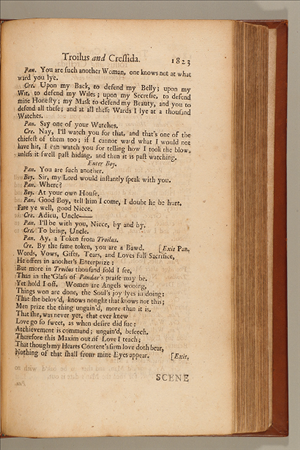 Troilus and Cressida. 1823
Pan. You are such another Woman, one knows not at what
ward you lye.
Cre. Upon my Back, to defend my Belly; upon my
Wit, to defend my Wiles; upon my Secresie, to defend
mine Honesty; my Mask to defend my Beauty, and you to
defend all these; and at all these Wards I lye at a thousand
Watches.
Pan. Say one of your Watches.
Cre. Nay, I'll watch you for that, and that's one of the
chiefest of them too; if I cannot ward what I would not
have hit, I can watch you for telling how I took the blow,
unless it swell past hiding, and then it is past watching.
Enter Boy.
Pan. You are such another.
Boy. Sir, my Lord would instantly speak with you.
Pan. Where?
Boy. At your own House.
Pan. Good Boy, tell him I come, I doubt he be hurt.
Fare ye well, good Niece.
Cre. Adieu, Uncle——
Pan. I'll be with you, Niece, by and by.
Cre. To bring, Uncle.
Pan. Ay, a Token from Troilus.
Cre. By the same token, you are a Bawd. [Exit Pan.
Words, Vows, Gifts, Tears, and Loves full Sacrifice,
He offers in another's Enterprize:
But more in Troilus thousand fold I see,
Than in the Glass of Pandar's praise may be.
Yet hold I off. Women are Angels wooing,
Things won are done, the Soul's joy lyes in doing:
That she belov'd, knows nought that knows not this;
Men prize the thing ungain'd, more than it is.
That she, was never yet, that ever knew
Love go so sweet, as when desire did sue:
Atchievement is command; ungain'd, beseech.
Therefore this Maxim out of Love I teach;
That though my Hearts Content's firm love doth bear,
Nothing of that shall from mine Eyes appear. [Exit.
SCENE